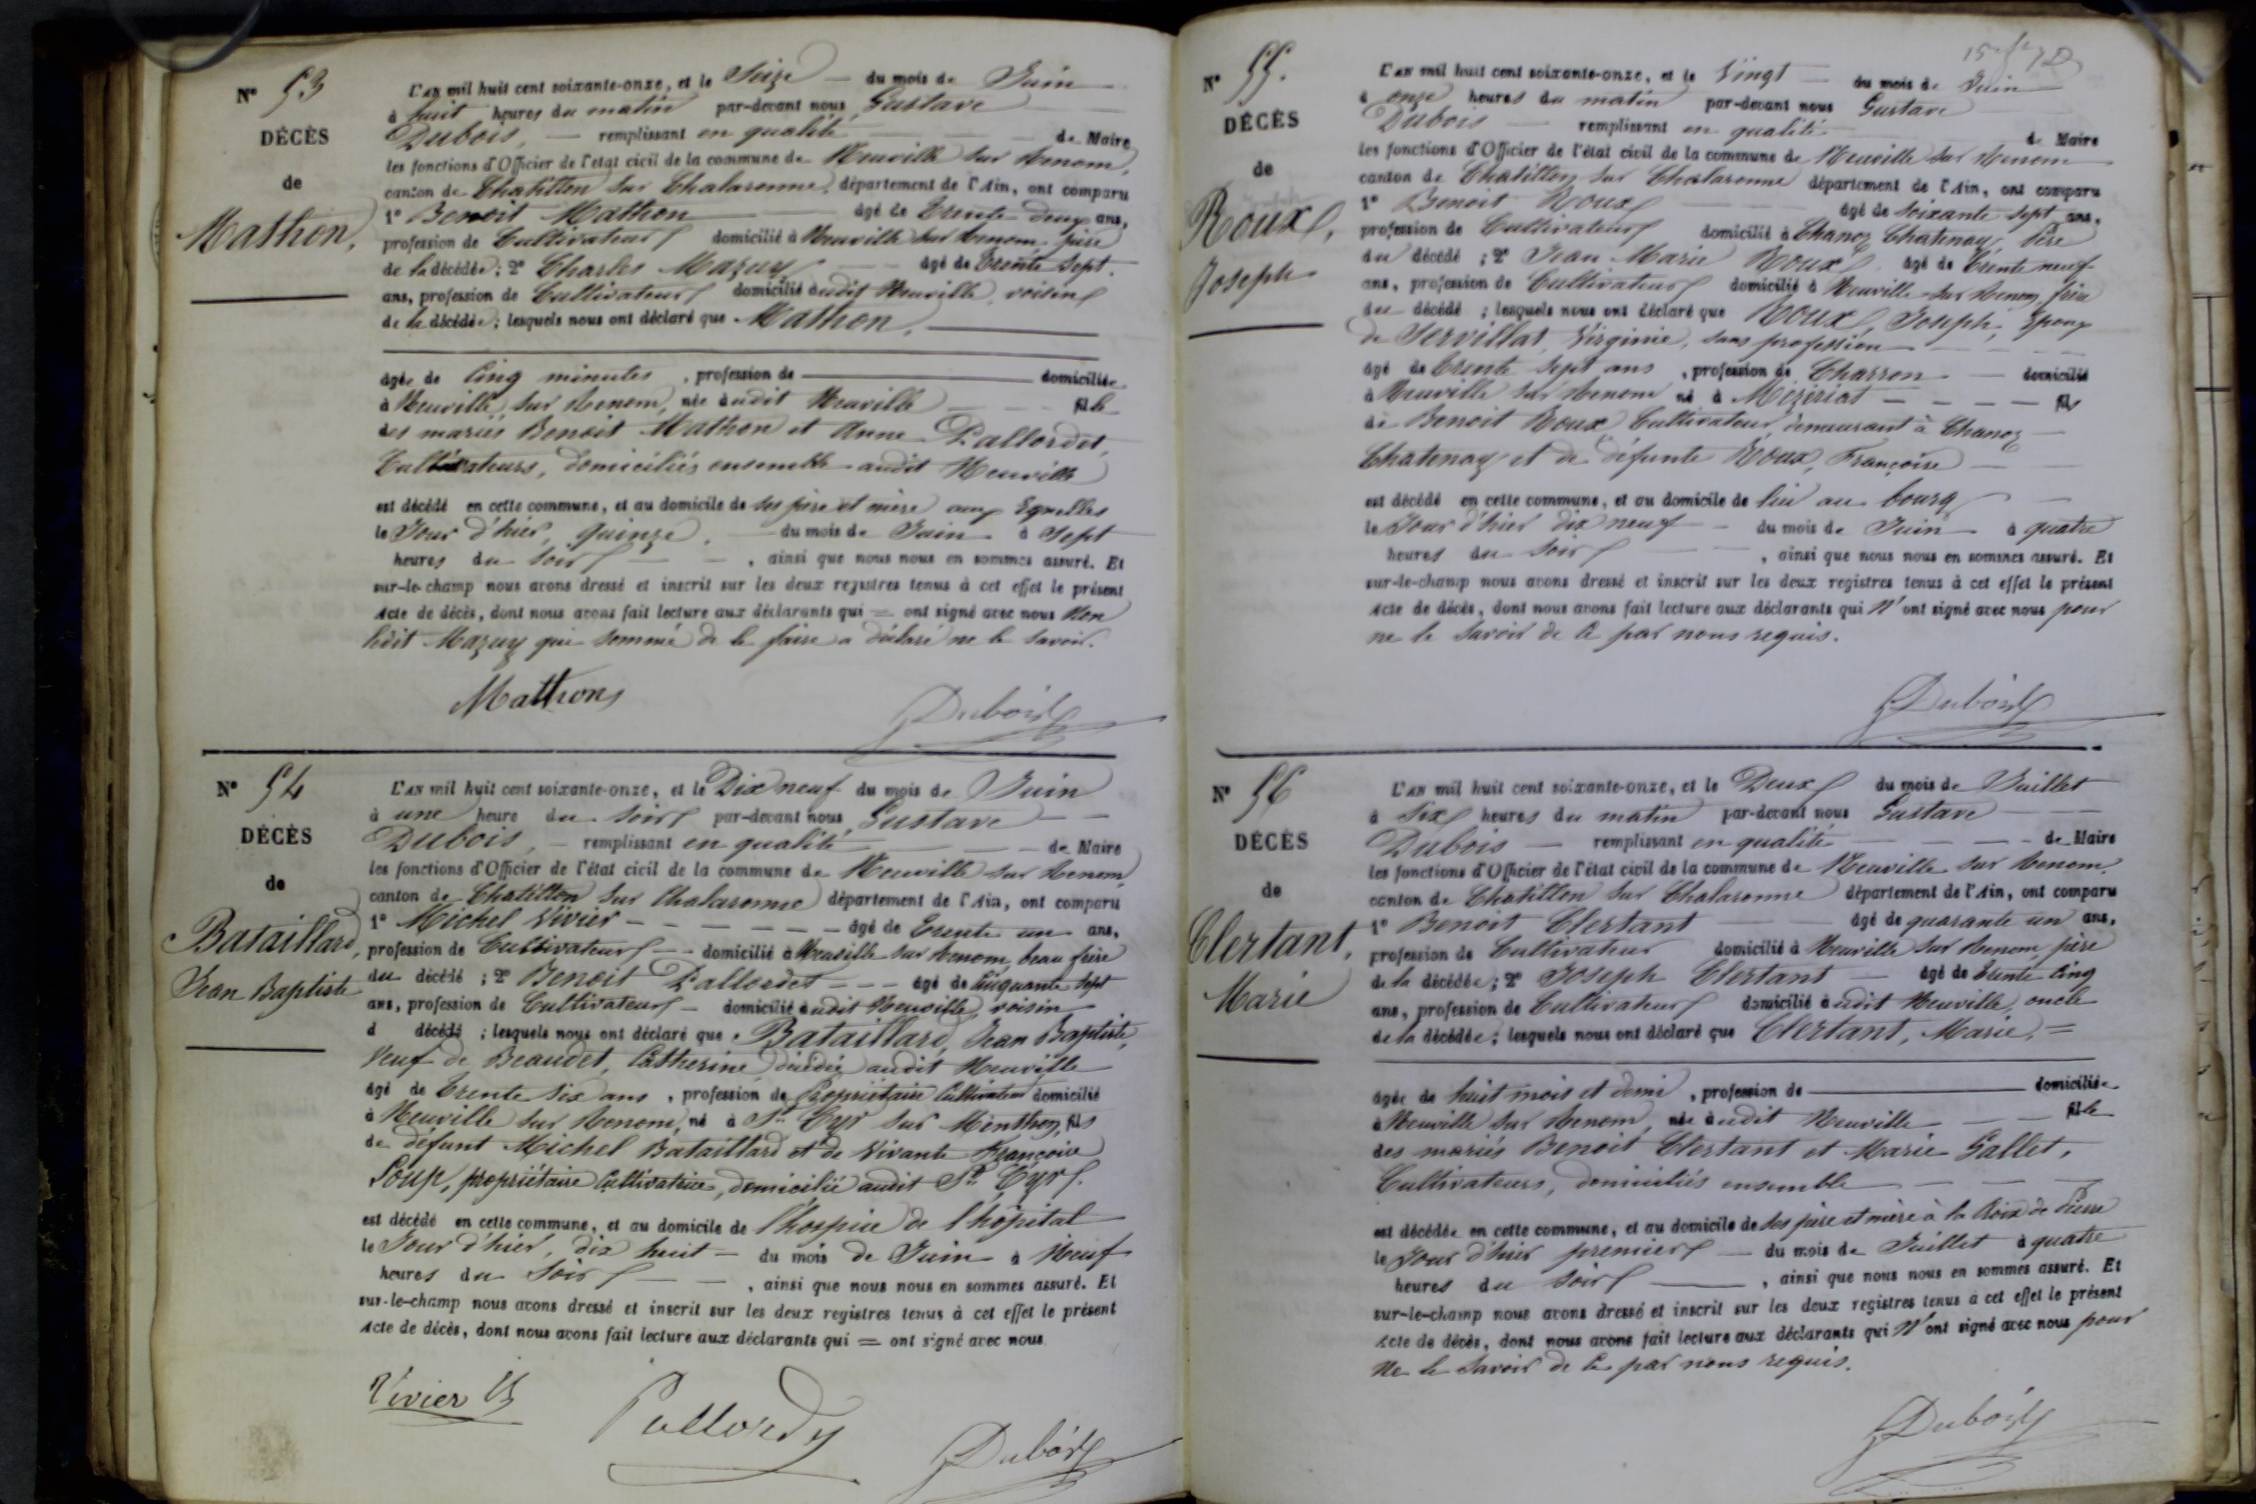 N° 53
DÉCÈS
de
Mathon,
L'AN mil huit cent soixante-onze, et le Seize du mois de Juin
à huit heures du matin par-devant nous Gustave
Dubois, remplissant en qualité de Maire
les fonctions d'Officier de l'état civil de la commune de Neuville sur Renom,
canton de Chatillon sur Chalaronne, département de l'Ain, ont comparu
1° Benoit Mathon âgé de Trente deux ans,
profession de Cultivateur domicilié à Neuville sur Renom père
de la décédée; 2° Charles Mazuy âgé de Trente sept
ans, profession de Cultivateur domicilié audit Neuville, voisin
de la décédée; lesquels nous ont déclaré que Mathon,
âgée de Cinq minutes, profession de domiciliée
à Neuville sur Renom, née audit Neuville fille
des mariés Benoit Mathon et Anne Pallordet,
Cultivateurs, domiciliés ensemble audit Neuville
est décédé en cette commune, et au domicile de ses père et mère aux Egnelles
le Jour d'hier, quinze, du mois de Juin à Sept
heures du soir, ainsi que nous nous en sommes assuré. Et
sur-le-champ nous avons dressé et inscrit sur les deux registres tenus à cet effet le présent
Acte de décès, dont nous avons fait lecture aux déclarants qui = ont signé avec nous Non
ledit Mazuy qui sommé de le faire a déclaré ne le savoir.
Mathons
Dubois
N° 54
DÉCÈS
de
Bataillard,
Jean Baptiste
L'AN mil huit cent soixante-onze, et le Dix neuf du mois de Juin
à une heure du soir par-devant nous Gustave
Dubois, remplissant en qualité de Maire
les fonctions d'Officier de l'état civil de la commune de Neuville sur Renom,
canton de Chatillon sur Chalaronne département de l'Ain, ont comparu
1° Michel Vivier âgé de Trente un ans,
profession de Cultivateur domicilié à Neuville sur Renom beau frère
du décédé; 2° Benoit Pallordet âgé de Cinquante sept
ans, profession de Cultivateur domicilié audit Neuville, voisin
d décédé; lesquels nous ont déclaré que Bataillard, Jean Baptiste,
Veuf de Beaudet, Catherine décédée audit Neuville
âgé de Trente six ans, profession de Propriétaire Cultivateur domicilié
à Neuville sur Renom, né à St Cyr sur Menthon, fils
de défunt Michel Bataillard et de Vivante Françoise
Loup, propriétaire Cultivatrice, domiciliée audit St Cyr.
est décédé en cette commune, et au domicile de l'hospice de l'hôpital
le Jour d'hier, dix huit du mois de Juin à Neuf
heures du soir, ainsi que nous nous en sommes assuré. Et
sur-le-champ nous avons dressé et inscrit sur les deux registres tenus à cet effet le présent
Acte de décès, dont nous avons fait lecture aux déclarants qui = ont signé avec nous
Vivier
Pallordy
Dubois
N° 55.
DÉCÈS
de
Roux,
Joseph
L'AN mil huit cent soixante-onze, et le Vingt du mois de Juin
à onze heures du matin par-devant nous Gustave
Dubois remplissant en qualité de Maire
les fonctions d'Officier de l'état civil de la commune de Neuville sur Renom
canton de Chatillon sur Chalaronne département de l'Ain, ont comparu
1° Benoit Roux âgé de soixante sept ans,
profession de Cultivateur domicilié à Chanoz Chatenay, Père
du décédé; 2° Jean Marie Roux âgé de Trente neuf
ans, profession de Cultivateur domicilié à Neuville sur Renom, frère
du décédé; lesquels nous ont déclaré que Roux, Joseph, Epoux
de Servillat, Virginie, sans profession
âgé de Trente sept ans, profession de Charron domicilié
à Neuville sur Renom né à Mézériat fils
de Benoit Roux Cultivateur, demeurant à Chanoz
Chatenay et de défunte Roux, Françoise
est décédé en cette commune, et au domicile de lui au bourg
le Jour d'hier dix neuf du mois de Juin à quatre
heures du soir, ainsi que nous nous en sommes assuré. Et
sur-le-champ nous avons dressé et inscrit sur les deux registres tenus à cet effet le présent
Acte de décès, dont nous avons fait lecture aux déclarants qui N'ont signé avec nous pour
ne le savoir de ce par nous requis.
Dubois
N° 56
DÉCÈS
de
Clertant,
Marie
L'AN mil huit cent soixante-onze, et le Deux du mois de Juillet
à Six heures du matin par-devant nous Gustave
Dubois remplissant en qualité de Maire
les fonctions d'Officier de l'état civil de la commune de Neuville sur Renom,
canton de Chatillon sur Chalaronne département de l'Ain, ont comparu
1° Benoit Clertant âgé de quarante un ans,
profession de Cultivateur domicilié à Neuville sur Renom, père
de la décédée; 2° Joseph Clertant âgé de Trente Cinq
ans, profession de Cultivateur domicilié audit Neuville, oncle
de la décédée; lesquels nous ont déclaré que Clertant, Marie, =
âgée de huit mois et demi, profession de domiciliée
à Neuville sur Renom, née audit Neuville fille
des mariés Benoit Clertant et Marie Gallet,
Cultivateurs, domiciliés ensemble
est décédée en cette commune, et au domicile de ses père et mère à la Croix de Pierre
le Jour d'hier premier du mois de Juillet à quatre
heures du soir, ainsi que nous nous en sommes assuré. Et
sur-le-champ nous avons dressé et inscrit sur les deux registres tenus à cet effet le présent
Acte de décès, dont nous avons fait lecture aux déclarants qui N'ont signé avec nous pour
Ne le savoir de ce par nous requis.
Dubois